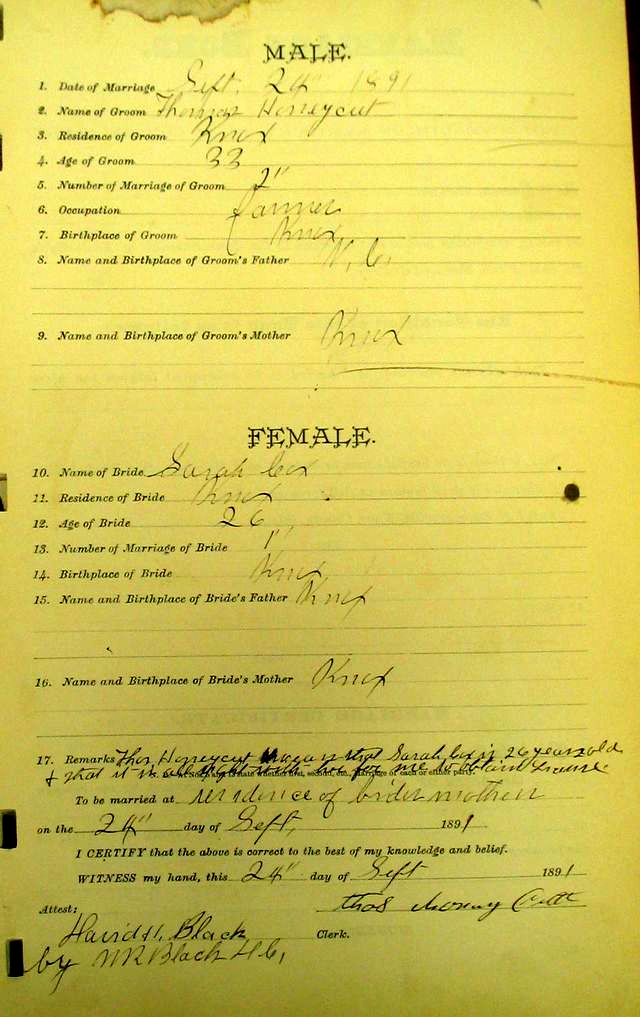 MALE.
1. Date of Marriage Sept. 24" 1891
2. Name of Groom Thomas Honeycut
3. Residence of Groom Knox
4. Age of Groom 33
5. Number of Marriage of Groom 2"
6. Occupation farmer
7. Birthplace of Groom Knox
8. Name and Birthplace of Groom's Father N. C.
9. Name and Birthplace of Groom's Mother Knox
FEMALE.
10. Name of Bride Sarah Cox
11. Residence of Bride Knox
12. Age of Bride 26
13. Number of Marriage of Bride 1"
14. Birthplace of Bride Knox
15. Name and Birthplace of Bride's Father Knox
16. Name and Birthplace of Bride's Mother Knox
17. Remarks Thos. Honeycut that Sarah Cox is 26 years old
& that it is all right with her for me to obtain license.
To be married at residence of brides mother
on the 24" day of Sept, 1891
I CERTIFY that the above is correct to the best of my knowledge and belief.
WITNESS my hand, this 24" day of Sept 1891
Attest: Thos
David H. Black Clerk.
by W R Black D C,